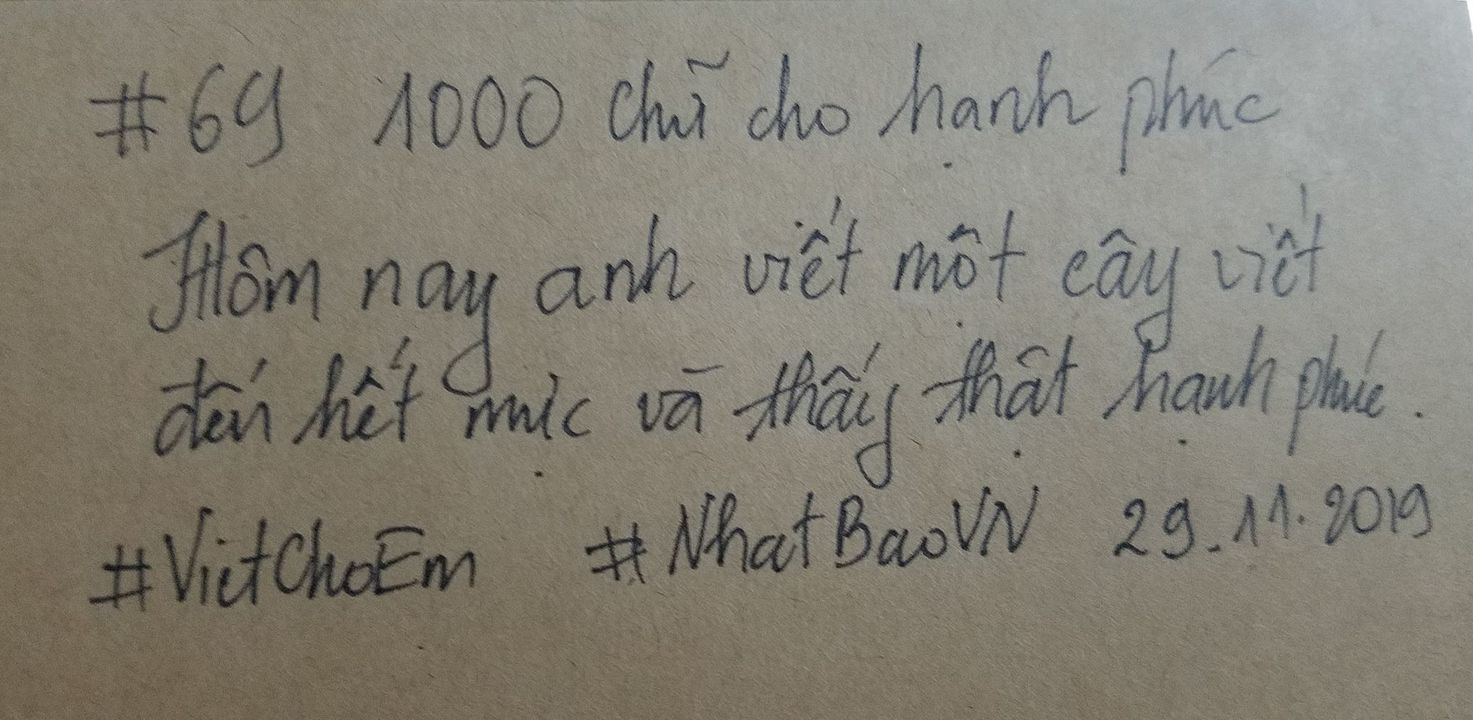 #69 1000 chữ cho hạnh phúc
Hôm nay anh viết một cây viết
đến hết mực và thấy thật hạnh phúc.
#VietChoEm #NhatBaoVN 29.11.2019